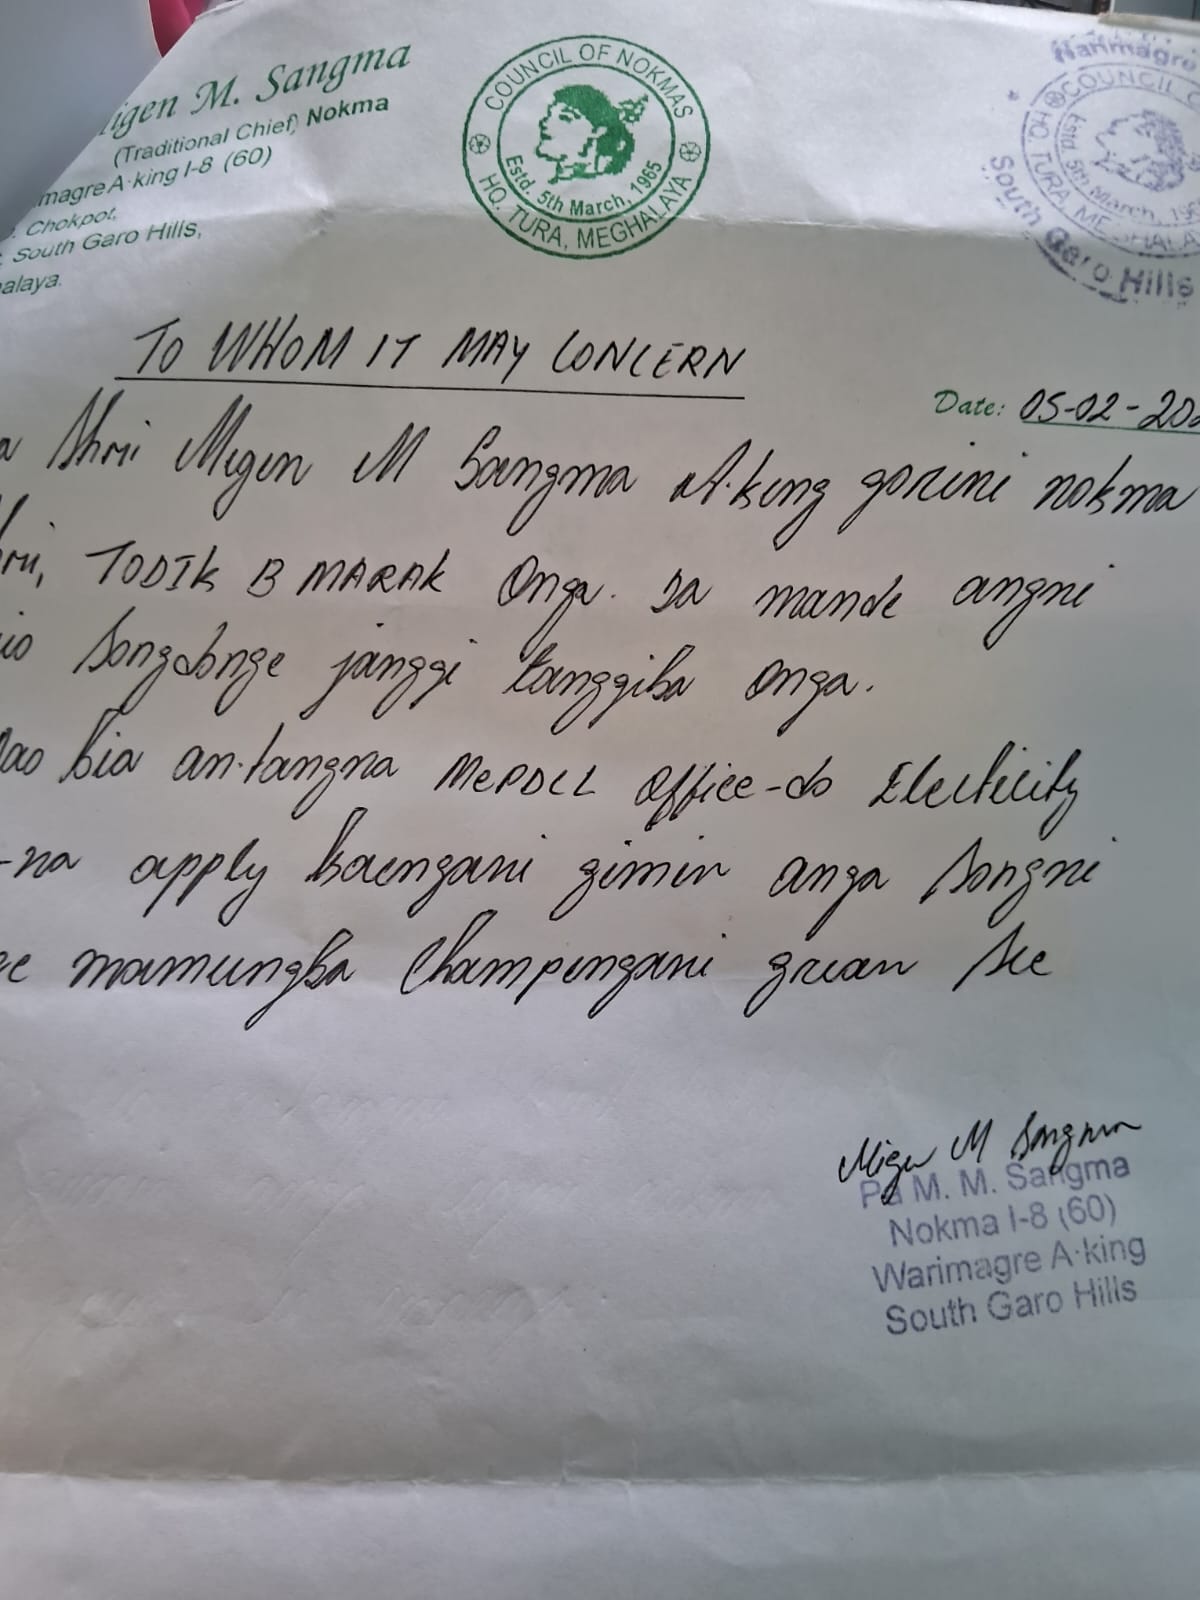 igen M. Sangma
(Traditional Chief) Nokma
magre A·king I-8 (60)
Chokpot,
South Garo Hills,
alaya.
COUNCIL OF NOKMAS
Estd. 5th March, 1965
HQ. TURA, MEGHALAYA
COUNCIL
Estd. 5th March, 19
HQ. TURA, ME
South Garo Hills
TO WHOM IT MAY CONCERN
Date: 05-02-202
a Shri Migen M Sangma A·king gonini nokma
TODIK B MARAK Onga. Ia mande angni
io Songdonge janggi tanggiba onga.
bia an·tangna MePDCL Office-do Electicity
-na apply kaengani gimin anga songni
mamungba Champengani gnan
Migen M Sangma
Pa M. M. Sangma
Nokma I-8 (60)
Warimagre A·king
South Garo Hills